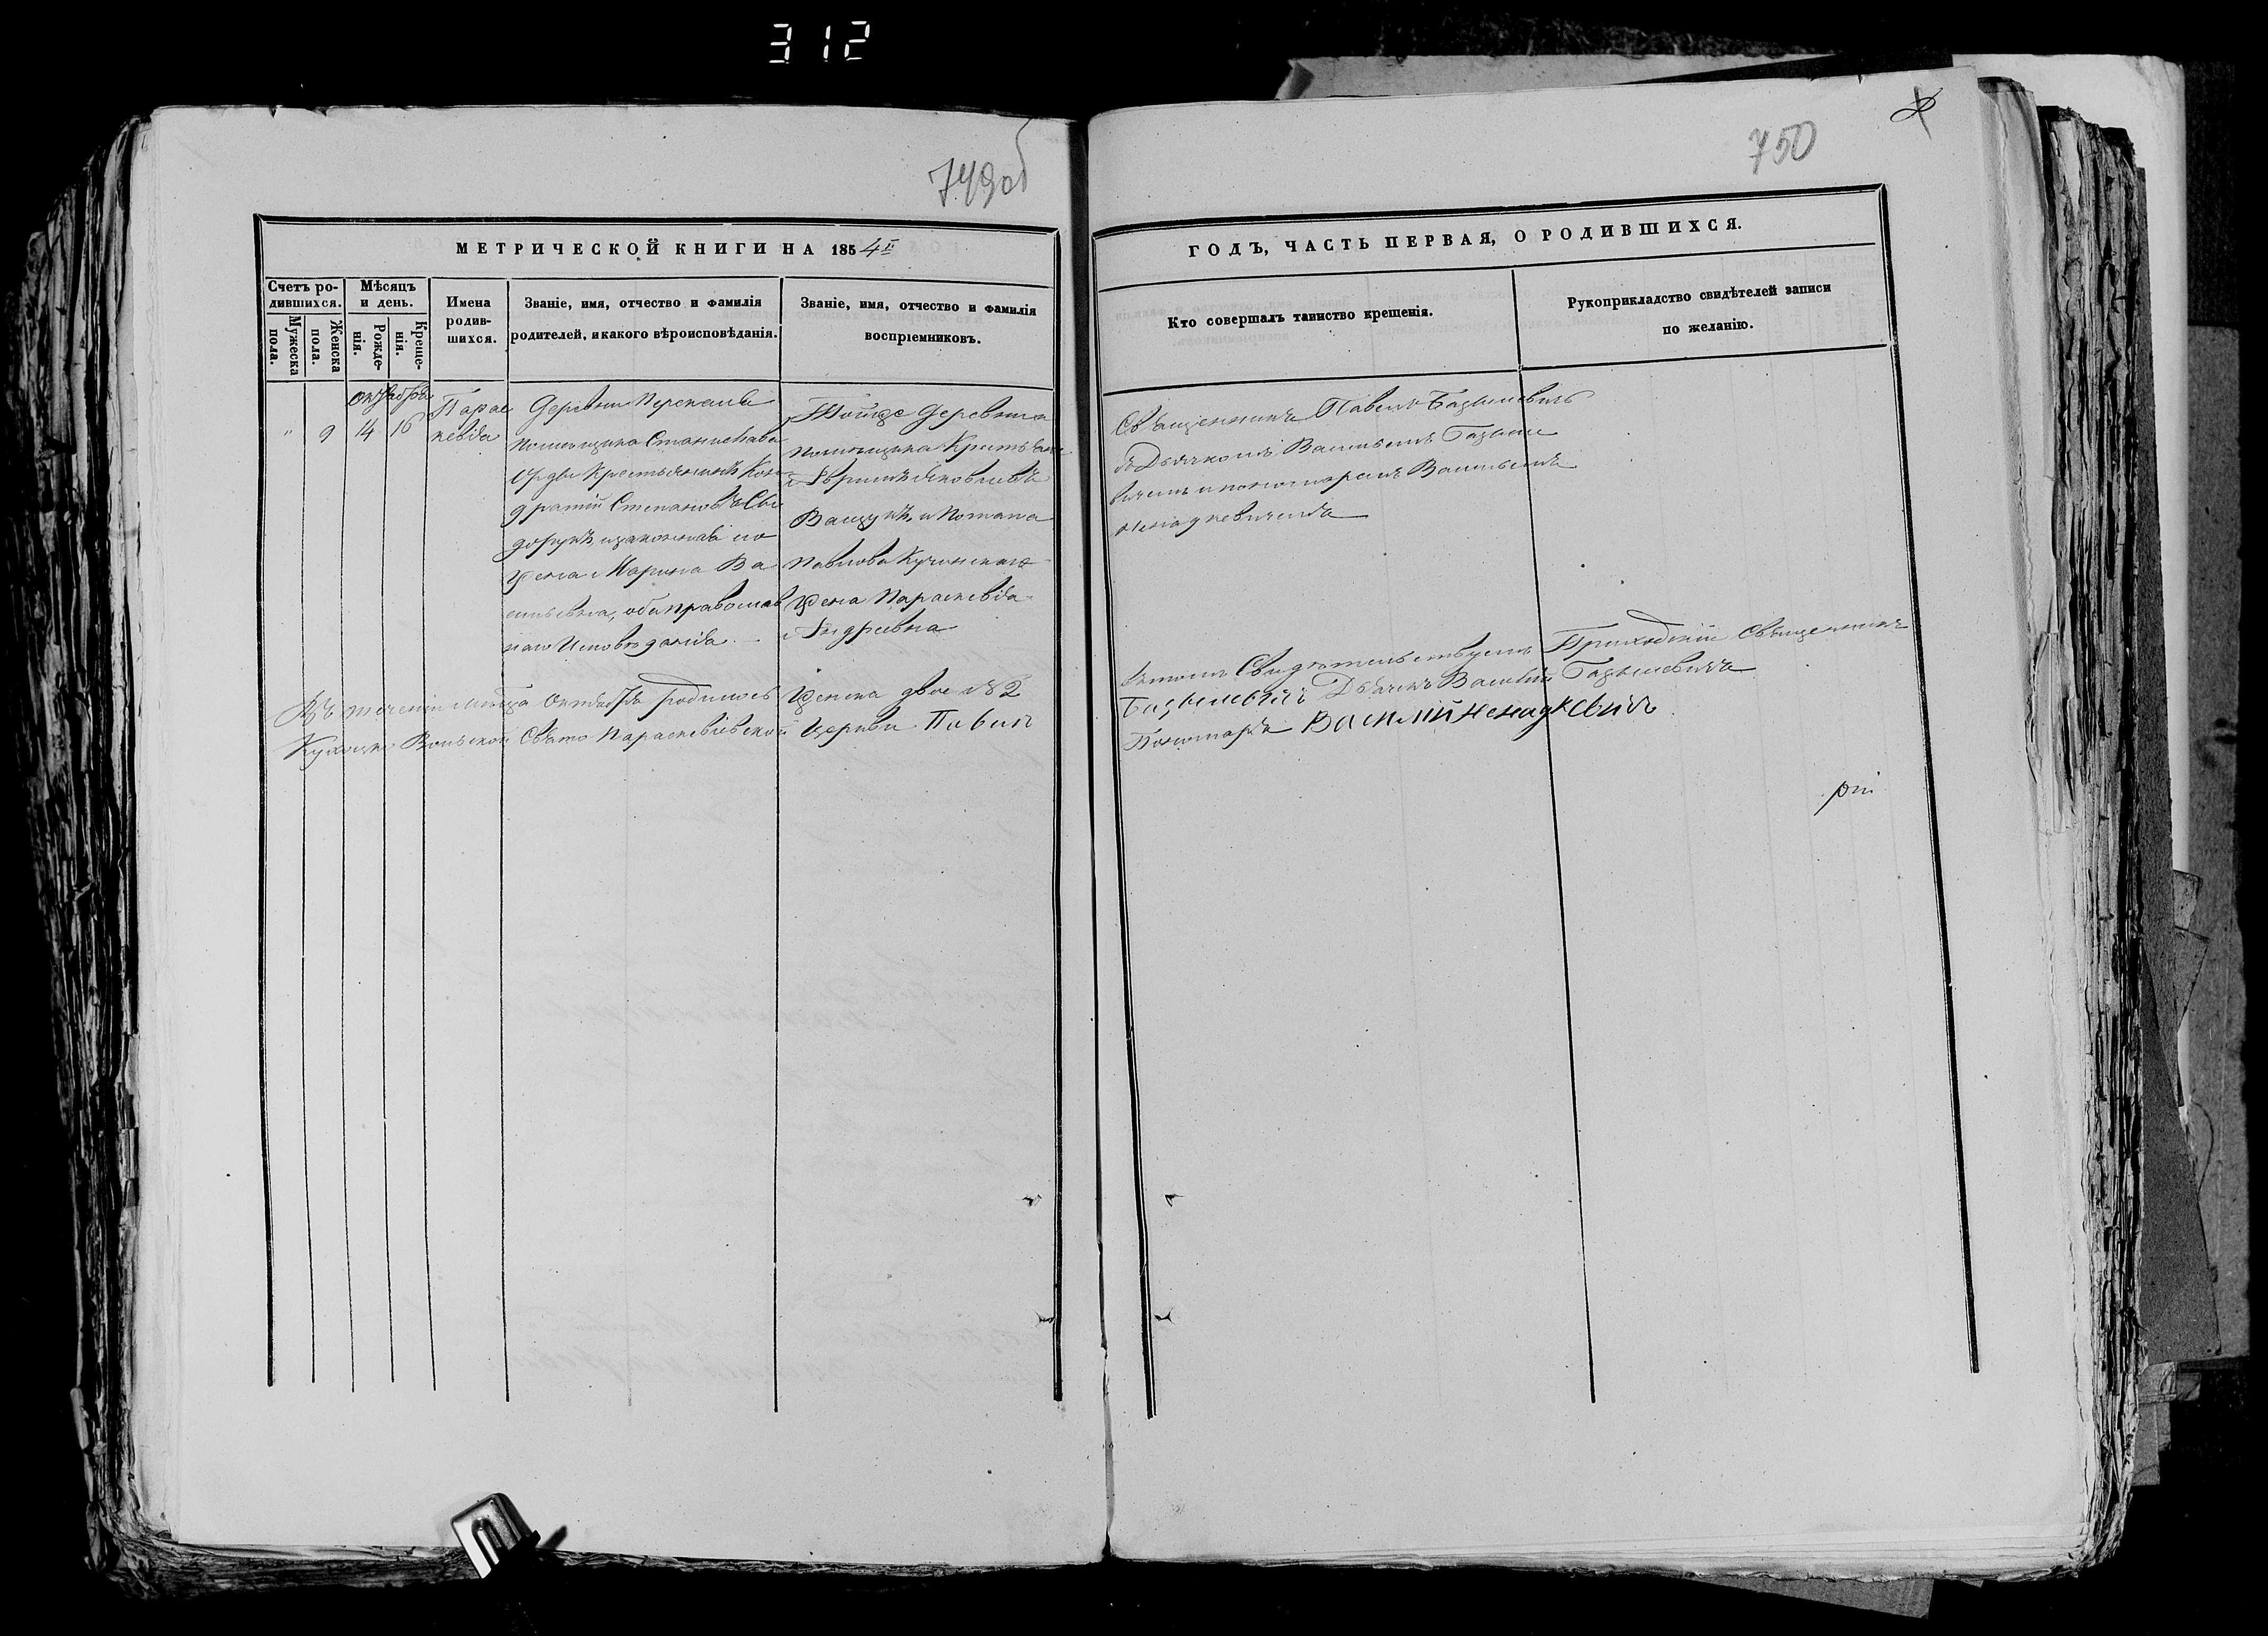 312
749об
750
МЕТРИЧЕСКОЙ КНИГИ НА 1854й
ГОДЪ, ЧАСТЬ ПЕРВАЯ, О РОДИВШИХСЯ.
Счетъ ро-
дившихся.
Мужеска
пола.
Женска
пола.
Мѣсяцъ
и день.
Рожде-
нія.
Креще-
нія.
Имена
родив-
шихся.
Званіе, имя, отчество и фамилія
родителей, и какого вѣроисповѣданія.
Званіе, имя, отчество и фамилія
воспріемниковъ.
Кто совершалъ таинство крещенія.
Рукоприкладство свидѣтелей записи
по желанію.
Октября
" 9 14 16
Парас
кевіа
Деревни
помещика Станислава
Орды Крестьянинъ Кон
дратій Степановъ Сы
дорукъ, и законная его
Жена Марина Ва
сильевна, оба православ
наго Исповѣданія.
Тойже деревни
помещика
Яковлевъ
Ващукъ, и Потапа
Павлова
Жена Параскевіа
Андреевна
Священникъ Павелъ Базылевичъ
съ Дьячкомъ Васильемъ Базыле
вичемъ и пономаремъ Васильемъ
Ненадкевичемъ
Въ теченіи месяца Октября родилось Женска двое №2
Вольской Свято Параскевіевской Церкви Павелъ
въ томъ Свидѣтельствуемъ Приходскій Священникъ
Базылевичъ Дьячекъ Василій Базылевичъ
Пономаръ Василій Ненадкевичъ